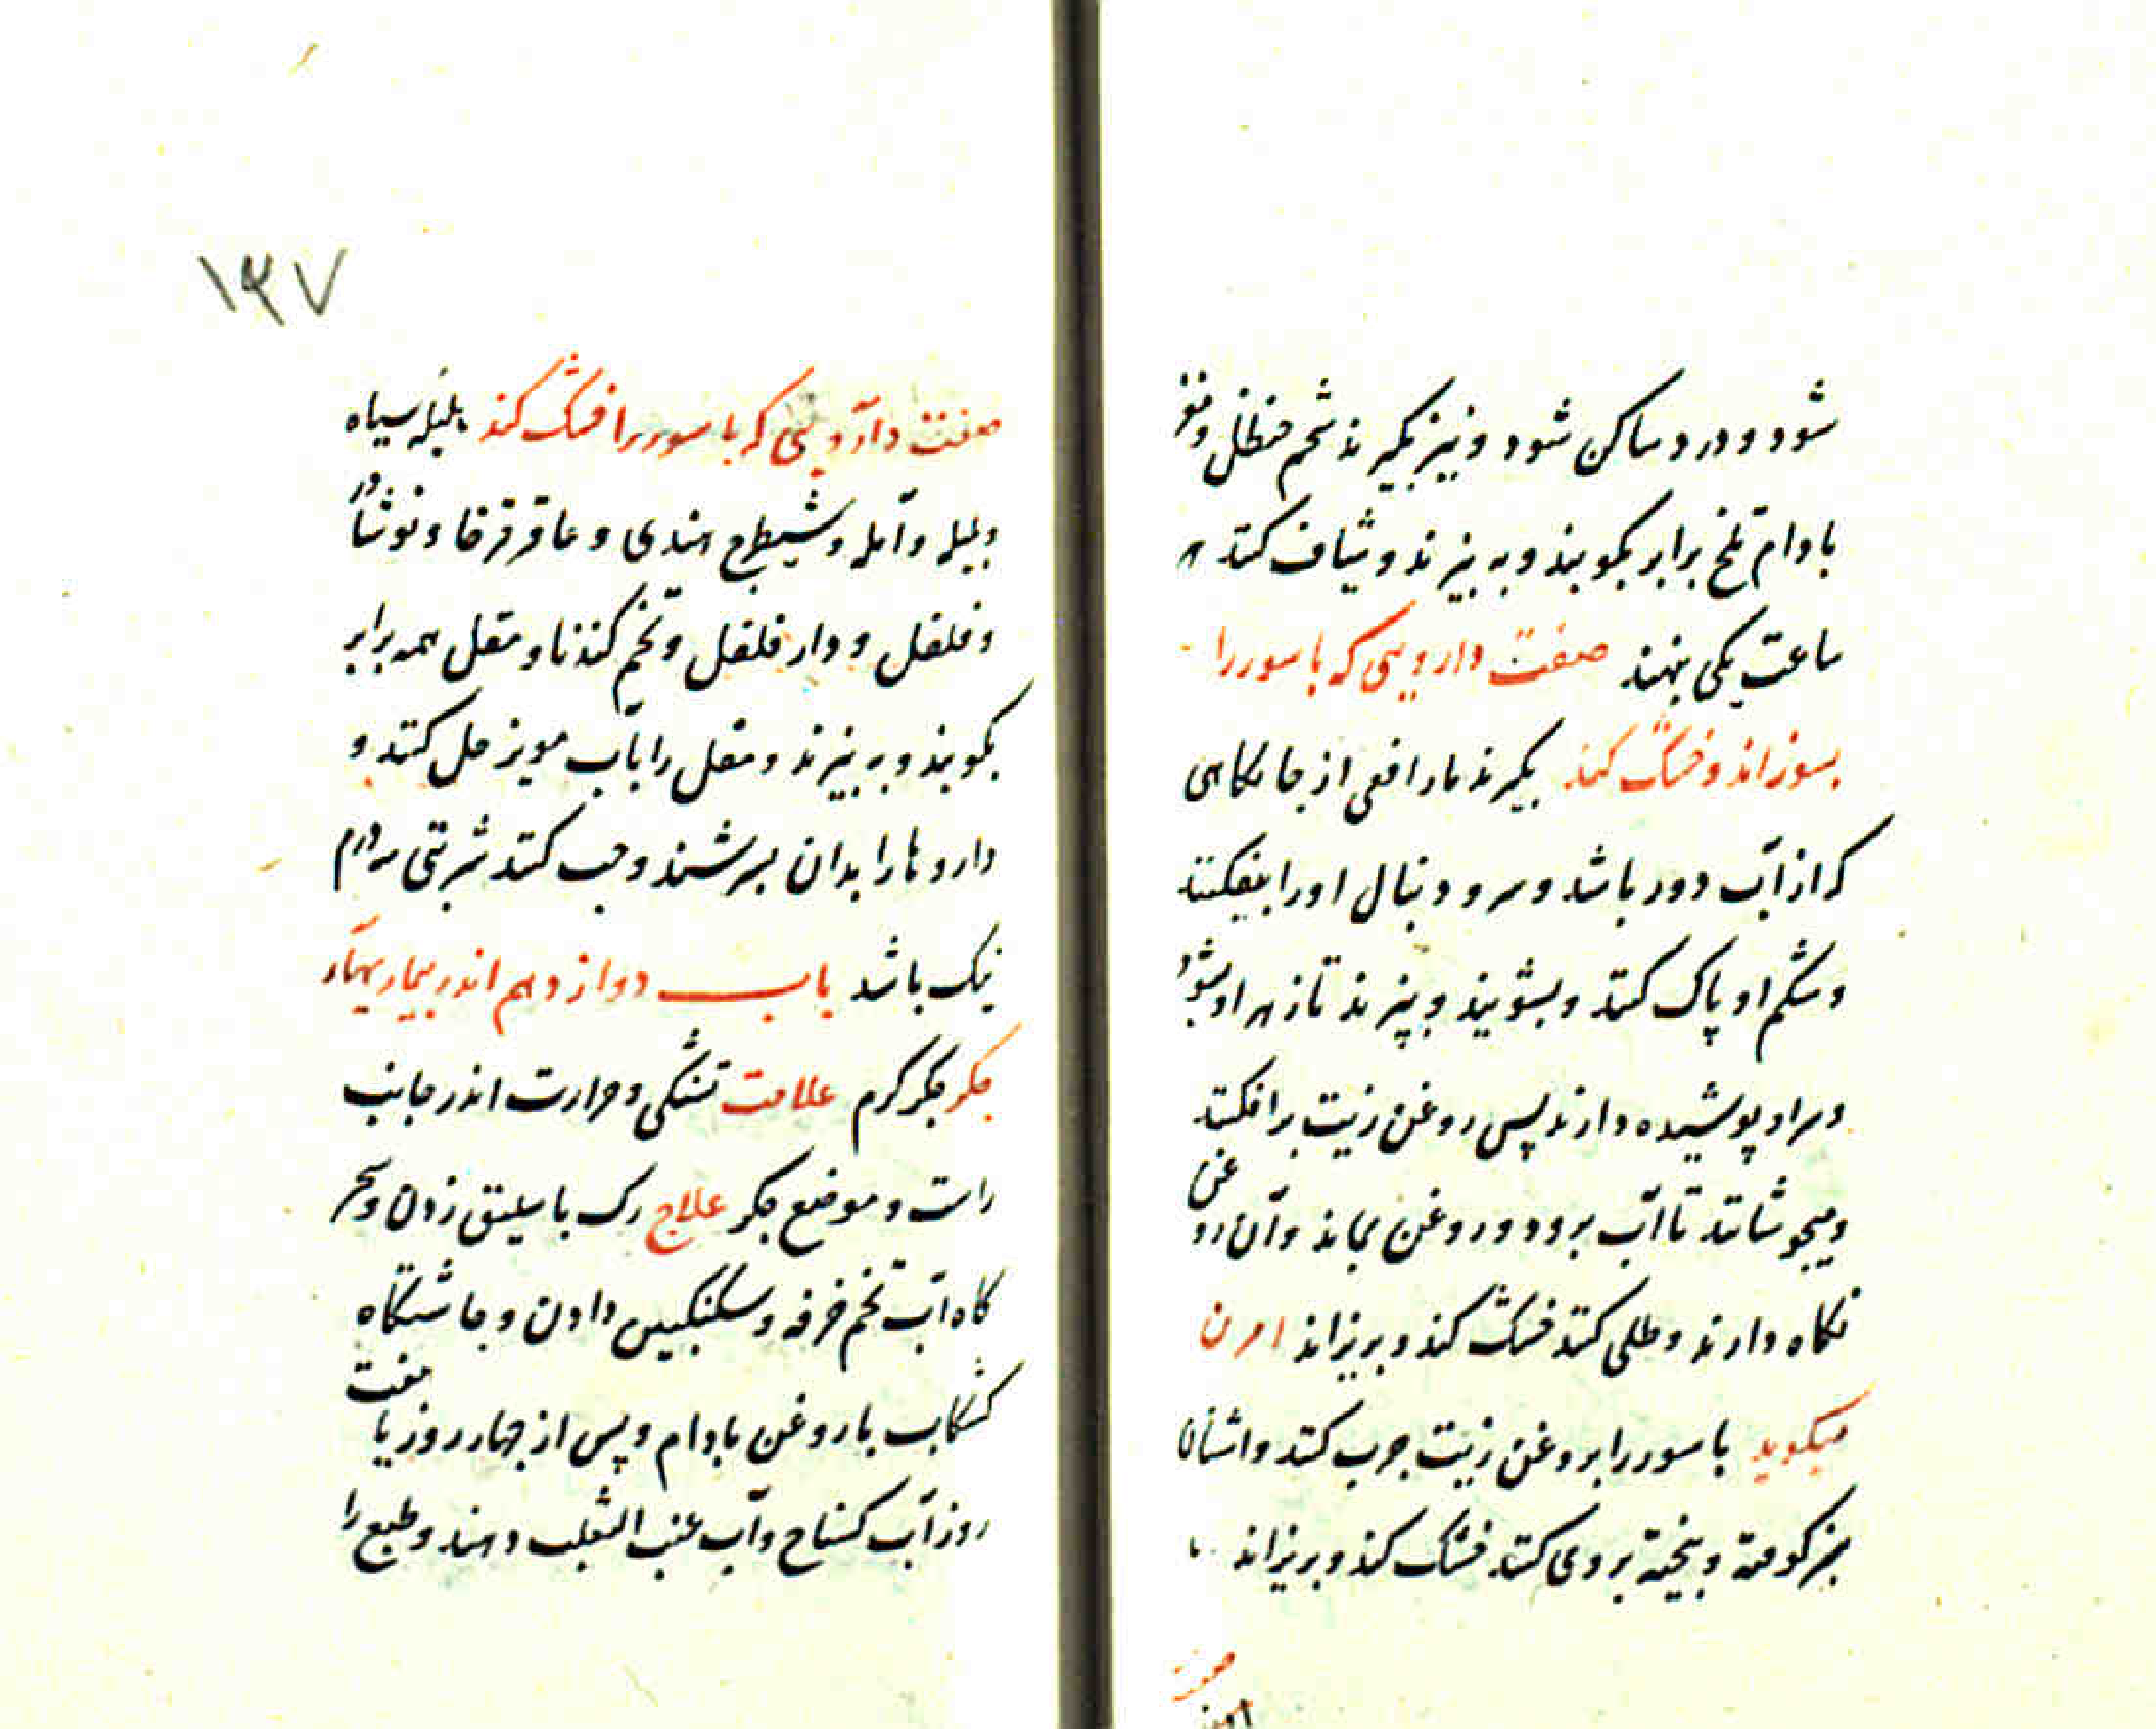 شود و درد ساکن شود و نیز بگیرند شحم حنظل و مغز
بادام تلخ برابر بکوبند و به بیزند و شیاف کنند هر
ساعت یکی بنهند صفت دارویی که باسور را
بسوزاند و خشک کند بگیرند مار افعی از جایگاهی
که از آب دور باشد و سر و دنبال او را بیفکنند
و شکم او پاک کنند و بشویند و بپزند تا زهر او بشود
و سر او پوشیده دارند پس روغن زیت برافکنند
و میجوشانند تا آب برود و روغن بماند و آن روغن
نگاه دارند و طلی کنند خشک کند و بریزاند
میگوید باسور را بروغن زیت چرب کنند و اشنان
سبز کوفته و بیخته بر وی کنند خشک کند و بریزاند
صفت
۱۳۷
صفت داروئی که باسور را خشک کند هلیله سیاه
و بلیله و آمله و شیطرج هندی و عاقرقرحا و نوشادر
و فلفل و دار فلفل و تخم کندنا و مقل همه برابر
بکوبند و به بیزند و مقل را بآب مویز حل کنند و
داروها را بدان بسرشند و حب کنند شربتی سه درم
نیک باشد باب دوازدهم اندر بیماریهای
جگر جگر گرم علامت تشنگی و حرارت اندر جانب
راست و موضع جگر علاج رگ باسلیق زدن و سحر
گاه آب تخم خرفه و سکنگبین دادن و چاشتگاه
کشکاب با روغن بادام و پس از چهار روز یا هفت
روز آب کسناج و آب عنب الثعلب دهند و طبع را